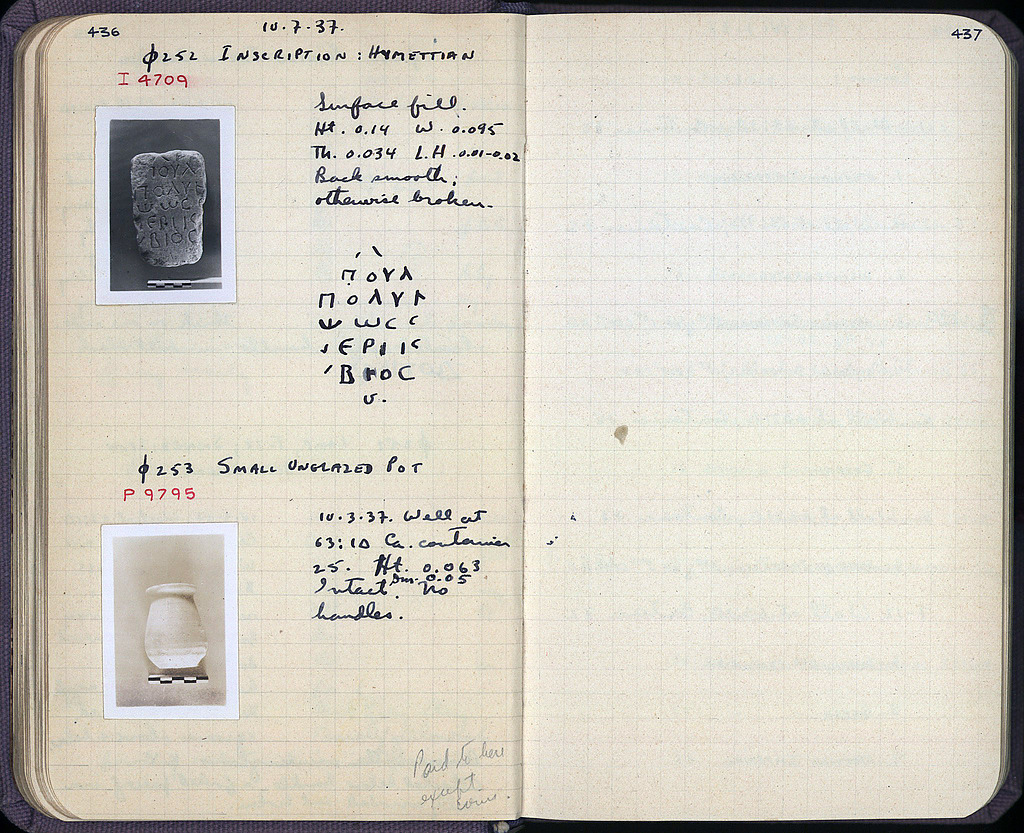 436
10.7.37.
φ252 INSCRIPTION : HYMETTIAN
I 4709
Surface fill.
Ht. 0.14 W. 0.095
Th. 0.034 L.H. 0.01-0.02
Back smooth;
otherwise broken.
ΠΟΥΛ
ΠΟΛΥΙ
ΨωC
ΕΡΙ
ΒΙΟC
υ.
φ253 SMALL UNGLAZED POT
P 9795
10.3.37. Well at
Ca. container
25. Ht. 0.063
Dm. 0.05
Intact. No
handles.
Paid to here
except
coins.
437